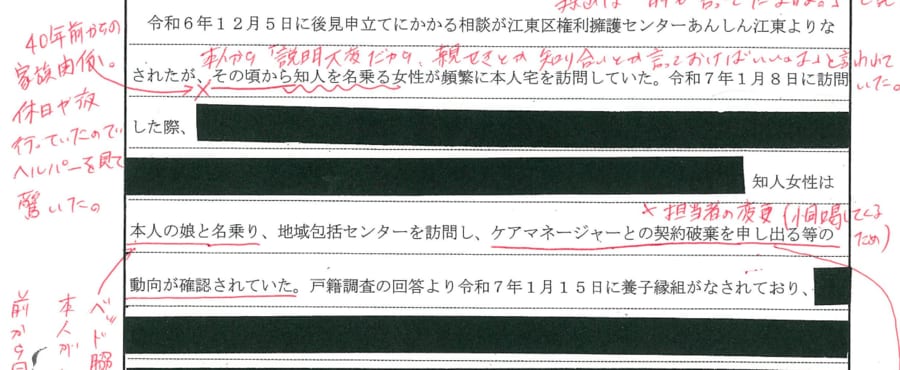 令和６年１２月５日に後見申立てにかかる相談が江東区権利擁護センターあんしん江東よりな
本人から「説明大変だから、親せきとか知り合いとか言っておけばいいよ」と言われて
いた。
されたが、その頃から知人を名乗る女性が頻繁に本人宅を訪問していた。令和７年１月８日に訪問
40年前からの
家族関係。
休日や夜
行っていたので
ヘルパーを見て
驚いた。
した際、
知人女性は
× 担当者の変更
ため)
本人の娘と名乗り、地域包括センターを訪問し、ケアマネージャーとの契約破棄を申し出る等の
動向が確認されていた。戸籍調査の回答より令和７年１月１５日に養子縁組がなされており、
ベッド
本人が
前から